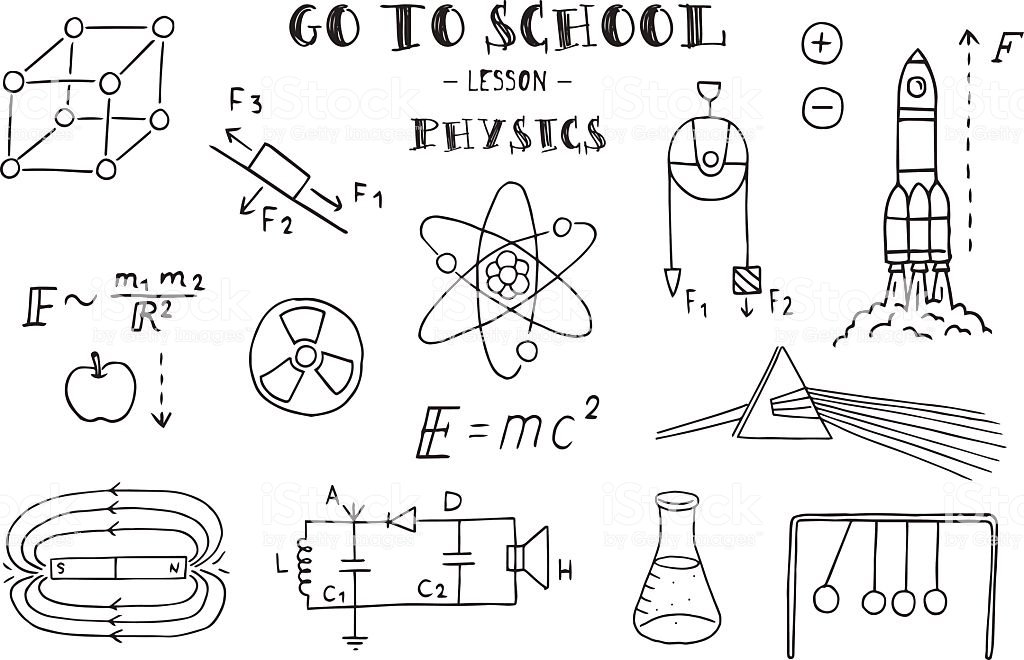 GO TO SCHOOL
– LESSON –
PHYSICS
F3
F1
F2
+
−
F
F1
F2
F ~ m1 m2 / R²
E = mc²
S N
A
D
L
C1
C2
H
iStock
by Getty Images™